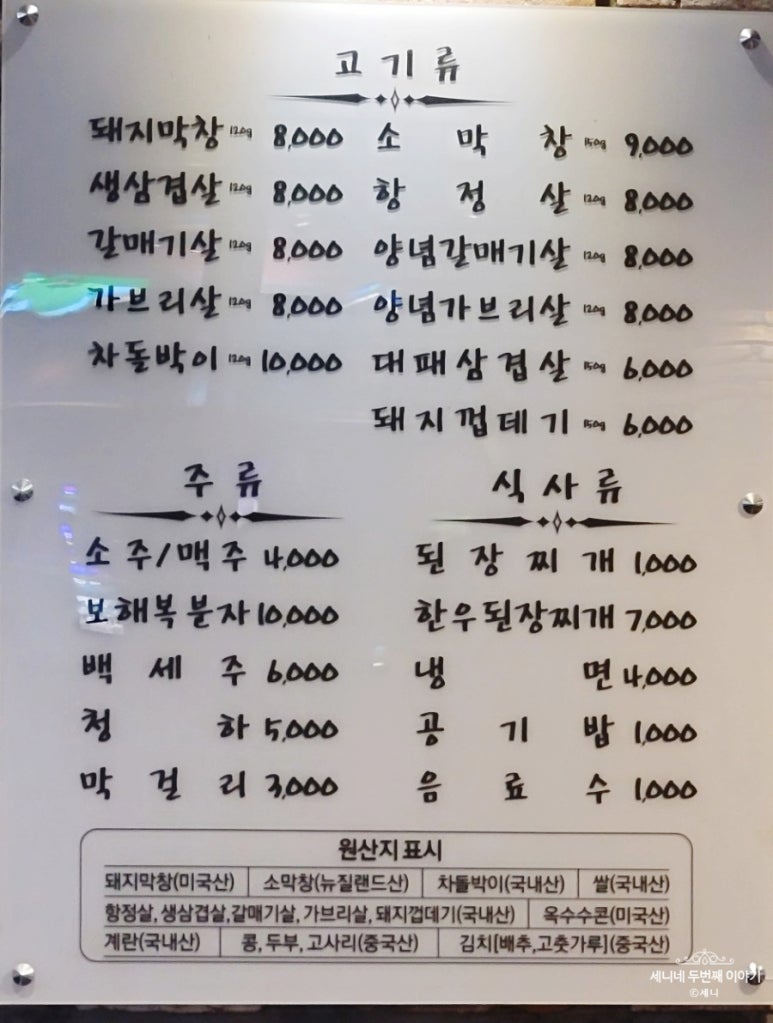 고기류
돼지막창 120g 8,000
생삼겹살 120g 8,000
갈매기살 120g 8,000
가브리살 120g 8,000
차돌박이 120g 10,000
소막창 150g 9,000
항정살 120g 8,000
양념갈매기살 120g 8,000
양념가브리살 120g 8,000
대패삼겹살 150g 6,000
돼지껍데기 150g 6,000
주류
소주/맥주 4,000
보해복분자 10,000
백세주 6,000
청하 5,000
막걸리 3,000
식사류
된장찌개 1,000
한우된장찌개 7,000
냉면 4,000
공기밥 1,000
음료수 1,000
원산지 표시
돼지막창(미국산) 소막창(뉴질랜드산) 차돌박이(국내산) 쌀(국내산)
항정살, 생삼겹살,갈매기살, 가브리살, 돼지껍데기(국내산) 옥수수콘(미국산)
계란(국내산) 콩, 두부, 고사리(중국산) 김치[배추,고춧가루](중국산)
세니네 두번째 이야기
ⓒ세니